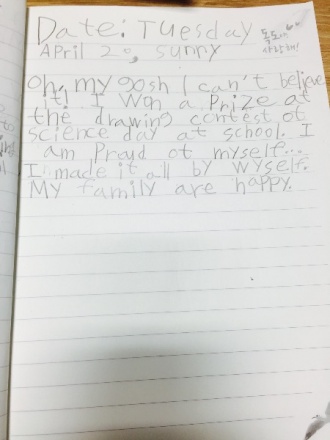 Date: Tuesday
April 20, sunny
사랑해!
Oh, my gosh I can't believe
it! I won a Prize at
the drawing contest of
science day at school. I
am Proud of myself...
I made it all by myself.
My family are happy.